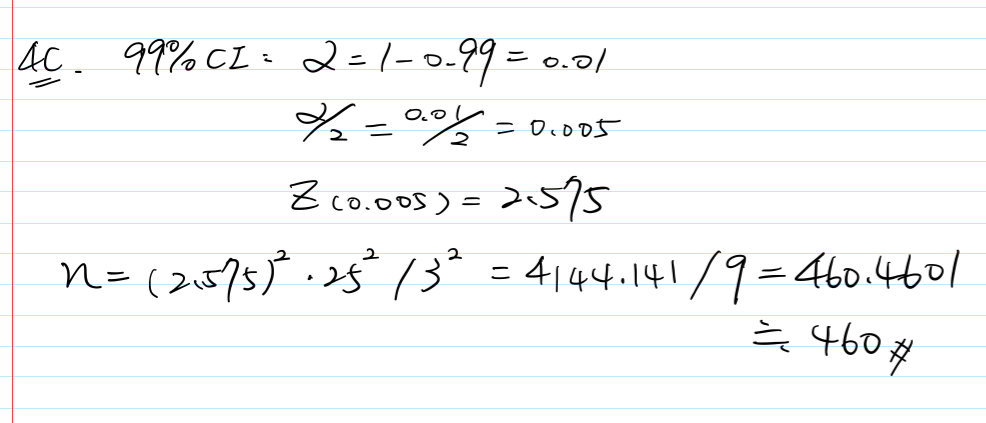 4C. 99% CI: α = 1 - 0.99 = 0.01
α/2 = 0.01/2 = 0.005
Z(0.005) = 2.575
n = (2.575)² · 25² / 3² = 4144.141 / 9 = 460.4601
≒ 460 #